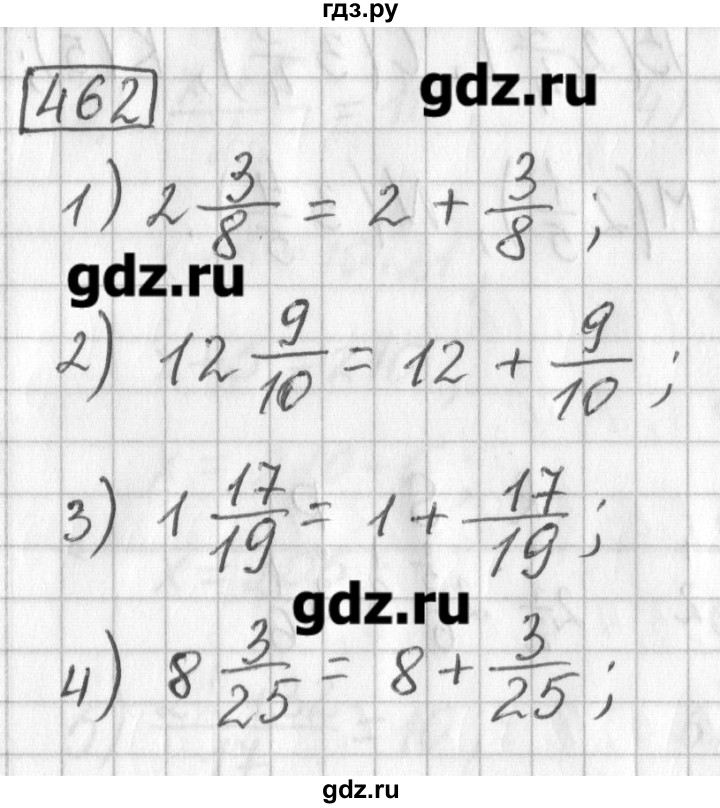 гдз.ру
gdz.ru
462
1) 2 3/8 = 2 + 3/8 ;
gdz.ru
2) 12 9/10 = 12 + 9/10 ;
3) 1 17/19 = 1 + 17/19 ;
gdz.ru
4) 8 3/25 = 8 + 3/25 ;
gdz.ru